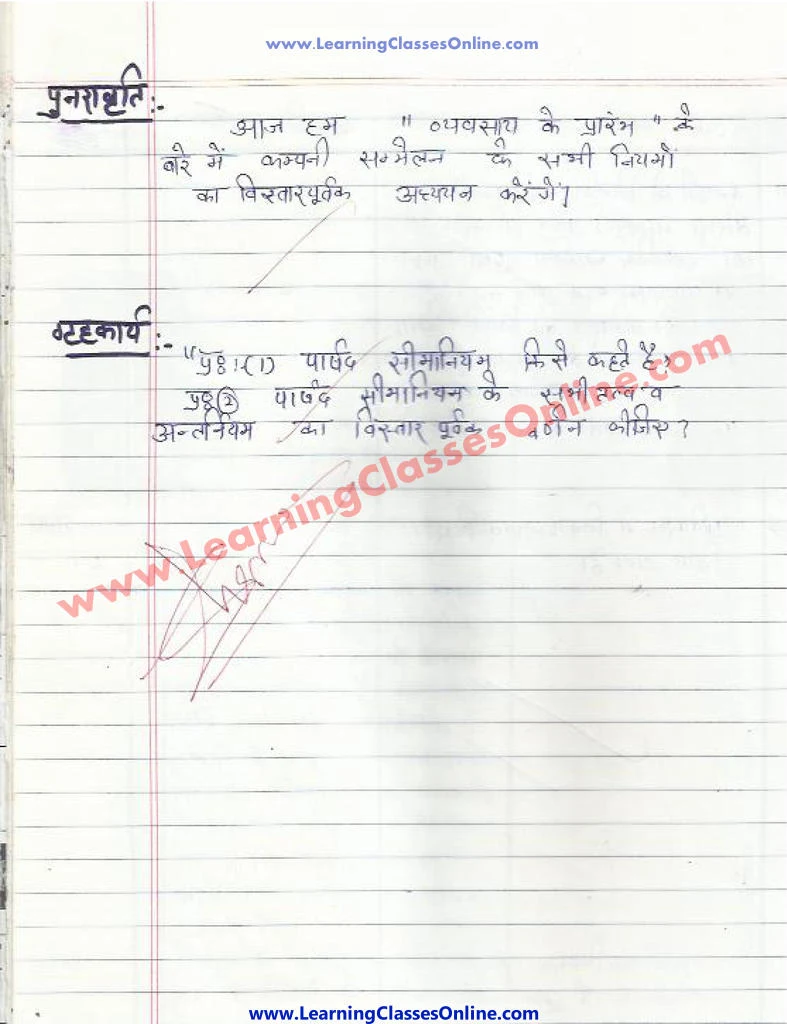 www.LearningClassesOnline.com
पुनरावृति :-
आज हम " व्यवसाय के प्रारंभ " के
बारे में कम्पनी सम्मेलन के सभी नियमों
का विस्तारपूर्वक अध्ययन करेंगें।
गृहकार्य :-
"प्रश्न:(1) पार्षद सीमानियम किसे कहते है?
प्रश्न② पार्षद सीमानियम के सभी तत्व व
अन्तर्नियम का विस्तार पूर्वक वर्णन कीजिए?
www.LearningClassesOnline.com
www.LearningClassesOnline.com